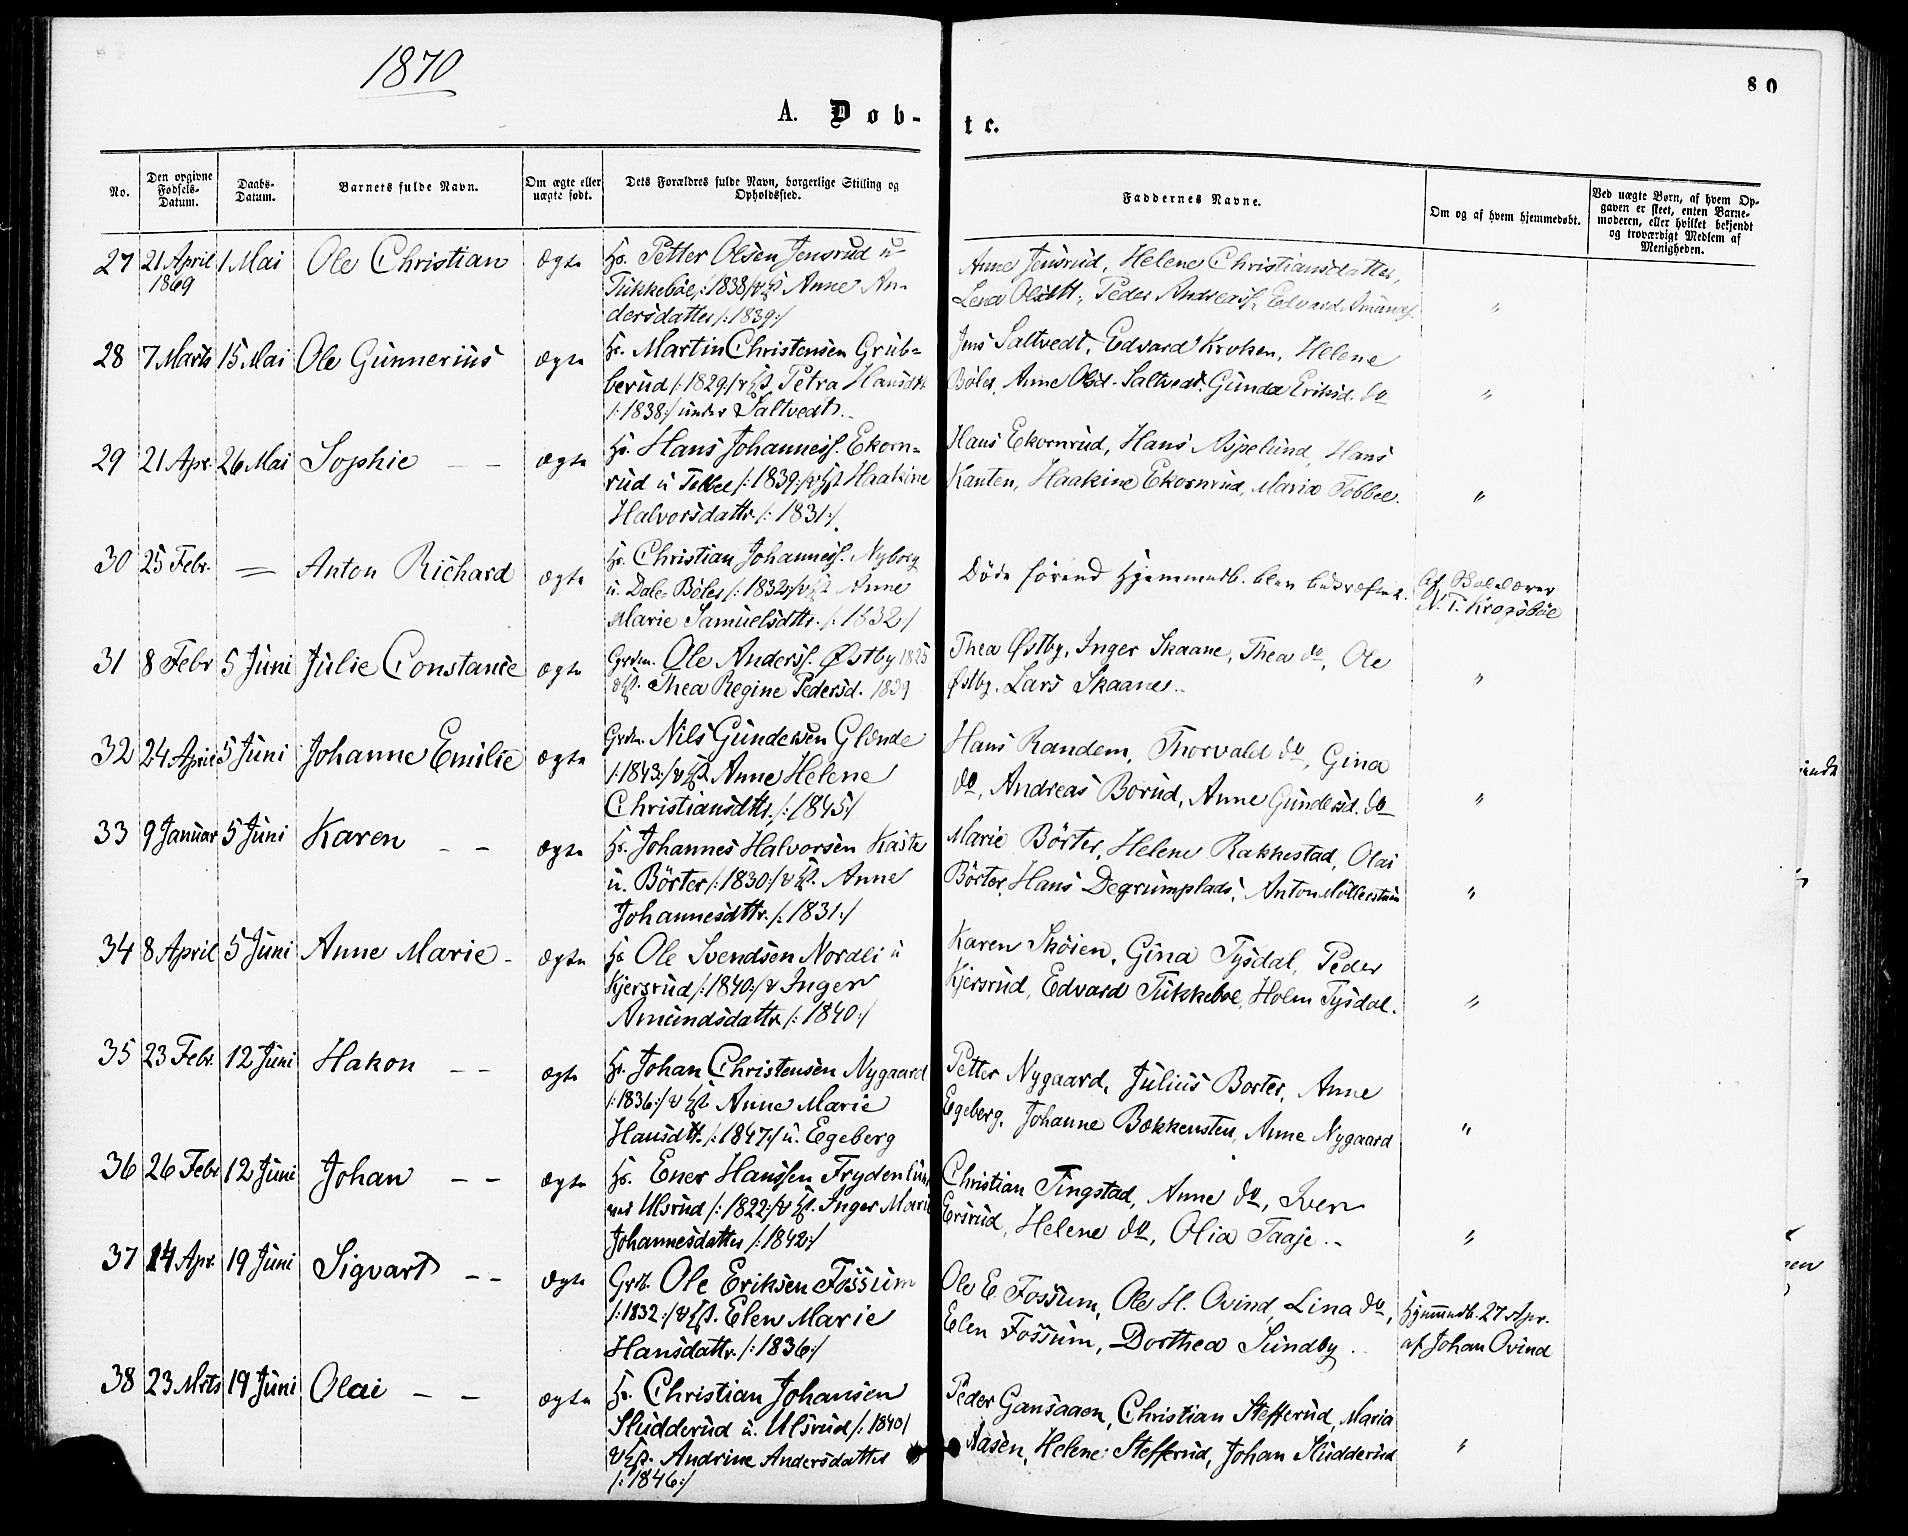 1870
80
A. Døb-
te.
No.
Den opgivne Fødsels-Datum.
Daabs-Datum.
Barnets fulde Navn.
Om ægte eller uægte født.
Dets Forældres fulde Navn, borgerlige Stilling og Opholdssted.
Faddernes Navne.
Om og af hvem hjemmedøbt.
Ved uægte Børn, af hvem Opgaven er skeet, enten Barnemoderen, eller hvilket bekjendt og troværdigt Medlem af Menigheden.
27 21 April 1869 1 Mai Ole Christian ægte
Hs. Petter Olsen Jensrud u
Tukkebøe /:1838:/ & Hst Anne An-
dersdatter /:1839:/
Anne Jensrud, Helene Christiansdatter,
Lena Olsdtt., Peder Andreass., Edvard Amunds. "
28 7 Marts 15 Mai Ole Gunnerius ægte
Hs. Martin Christensen Grub-
berud /:1829:/ & Hst. Petra Hansdtt
/:1838:/ under Saltvedt.
Jens Saltvedt, Edvard Kroken, Helene
Böler, Anne Olsd. Saltvedt, Gunda Eriksd. do "
29 21 Apr. 26 Mai Sophie – – ægte
Hs. Hans Johanness. Ekorn-
rud u Tobbe /:1839:/ & Hst Haakine
Halvorsdattr. /:1831:/
Hans Ekornrud, Hans Aspelund, Hans
Kanten, Haakine Ekornrud, Maria Tobbee. "
30 25 Febr. = Anton Richard ægte
Hs. Christian Johanness. Nyborg
u. Dale-Böler /:1832:/ & Hst Anne
Marie Samuelsdttr. /:1832:/
Döde förend Hjemmedb. blev bekræftet.
Af Skolelærer
N. T. Kropsböe
31 8 Febr 5 Juni Julie Constance ægte
Grdm. Ole Anderss. Østby 1825
& Hst. Thea Regine Pedersd. 1839
Thea Østby, Inger Skaane, Thea do, Ole
Østby, Lars Skaane. "
32 24 April 5 Juni Johanne Emilie ægte
Grdm. Nils Gundersen Glende
/:1843:/ & Hst. Anne Helene
Christiansdttr. /:1845:/
Hans Randem, Thorvald do, Gina
do, Andreas Borud, Anne Gundersd. do "
33 9 Januar 5 Juni Karen – – ægte
Hs. Johannes Halvorsen Kaste
u. Börter /:1830:/ & Hst. Anne
Johannesdttr. /:1831:/
Marie Börter, Helene Rakkestad, Olai
Börter, Hans Degrumplads, Anton Möllerstuen "
34 8 April 5 Juni Anne Marie – ægte
Hs Ole Svendsen Nordli u
Kjersrud /:1840:/ & Inger
Amundsdattr. /:1840:/
Karen Skøien, Gina Tysdal, Peder
Kjersrud, Edvard Tukkeboe, Holm Tysdal. "
35 23 Febr. 12 Juni Hakon – – ægte
Hs. Johan Christensen Nygaard
/:1836:/ & Hst Anne Marie
Hansdtt. /:1847:/ u. Egeberg
Petter Nygaard, Julius Borter, Anne
Egeberg, Johanne Bakkensten, Anne Nygaard "
36 26 Febr 12 Juni Johan – – ægte
Hs. Ener Hanssen Frydenlun
Ulsrud /:1822:/ & Hst. Inger Marie
Johannesdatter /:1842:/
Christian Tingstad, Anne do, Iver
Ersrud, Helene do, Olia Taaje. – "
37 14 Apr. 19 Juni Sigvart – – ægte
Grdb. Ole Eriksen Fossum
/:1832:/ & Hst. Elen Marie
Hansdattr. /:1836:/
Ole E. Fossum, Ole H. Ovind, Lina do,
Elen Fossum, Dorthea Sundby.
Hjemmedb. 27 Apr.
af Johan Ovind
38 23 Mrts 19 Juni Olai – – ægte
Hs. Christian Johansen
Sludderud u. Ulsrud /:1840/
& Hst. Andrine Andersdatter
/:1846:/
Peder Gansaaen, Christian Stefferud, Maria
Aasen, Helene Stefferud, Johan Sludderud "